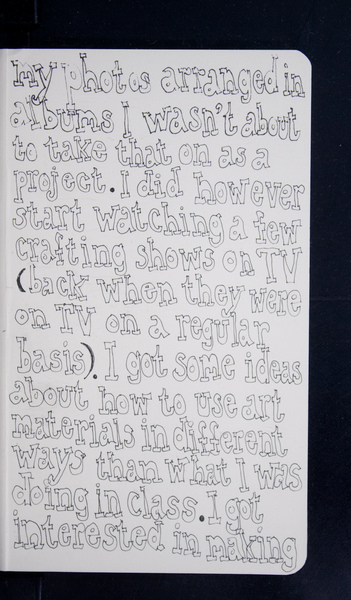 my photos arranged in
albums I wasn't about
to take that on as a
project. I did however
start watching a few
crafting shows on TV
(back when they were
on TV on a regular
basis). I got some ideas
about how to use art
materials in different
ways than what I was
doing in class. I got
interested in making